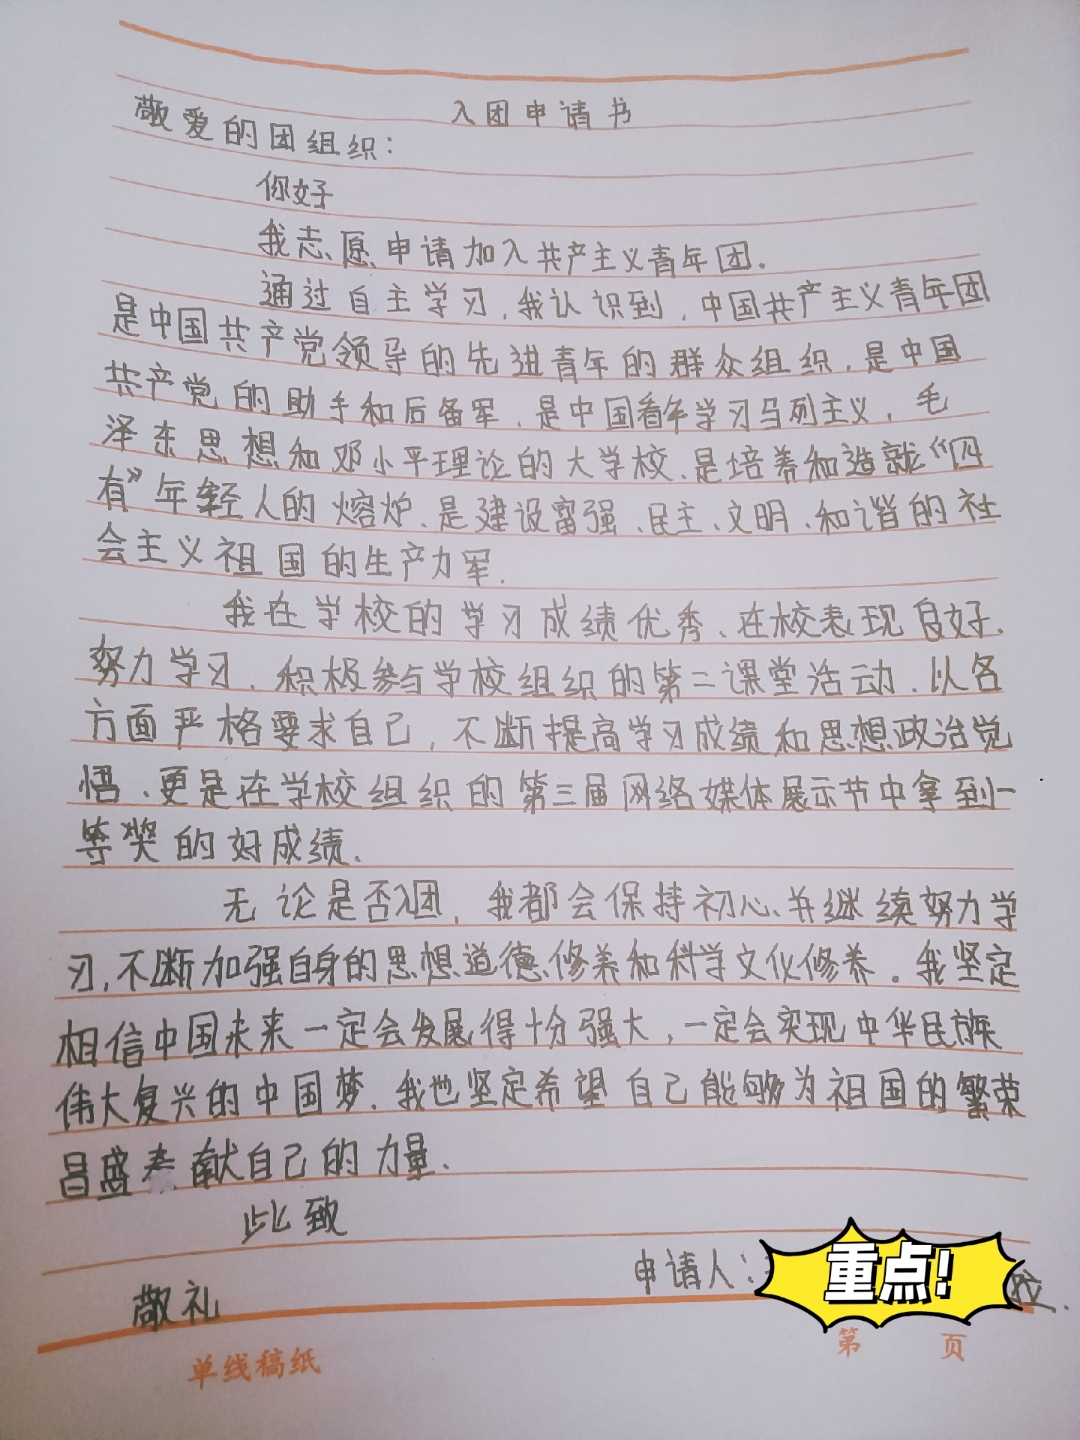 入团申请书
敬爱的团组织：
你好
我志愿申请加入共产主义青年团.
通过自主学习,我认识到,中国共产主义青年团
是中国共产党领导的先进青年的群众组织,是中国
共产党的助手和后备军,是中国青年学习马列主义,毛
泽东思想和邓小平理论的大学校、是培养和造就“四
有”年轻人的熔炉、是建设富强、民主、文明、和谐的社
会主义祖国的生产力军.
我在学校的学习成绩优秀、在校表现良好.
努力学习、积极参与学校组织的第二课堂活动、以各
方面严格要求自己,不断提高学习成绩和思想政治觉
悟、更是在学校组织的第三届网络媒体展示节中拿到一
等奖的好成绩.
无论是否入团,我都会保持初心、并继续努力学
习,不断加强自身的思想道德修养和科学文化修养。我坚定
相信中国未来一定会发展得十分强大,一定会实现中华民族
伟大复兴的中国梦.我也坚定希望自己能够为祖国的繁荣
昌盛奉献自己的力量.
此致
申请人：
重点!
敬礼
单线稿纸
第 页